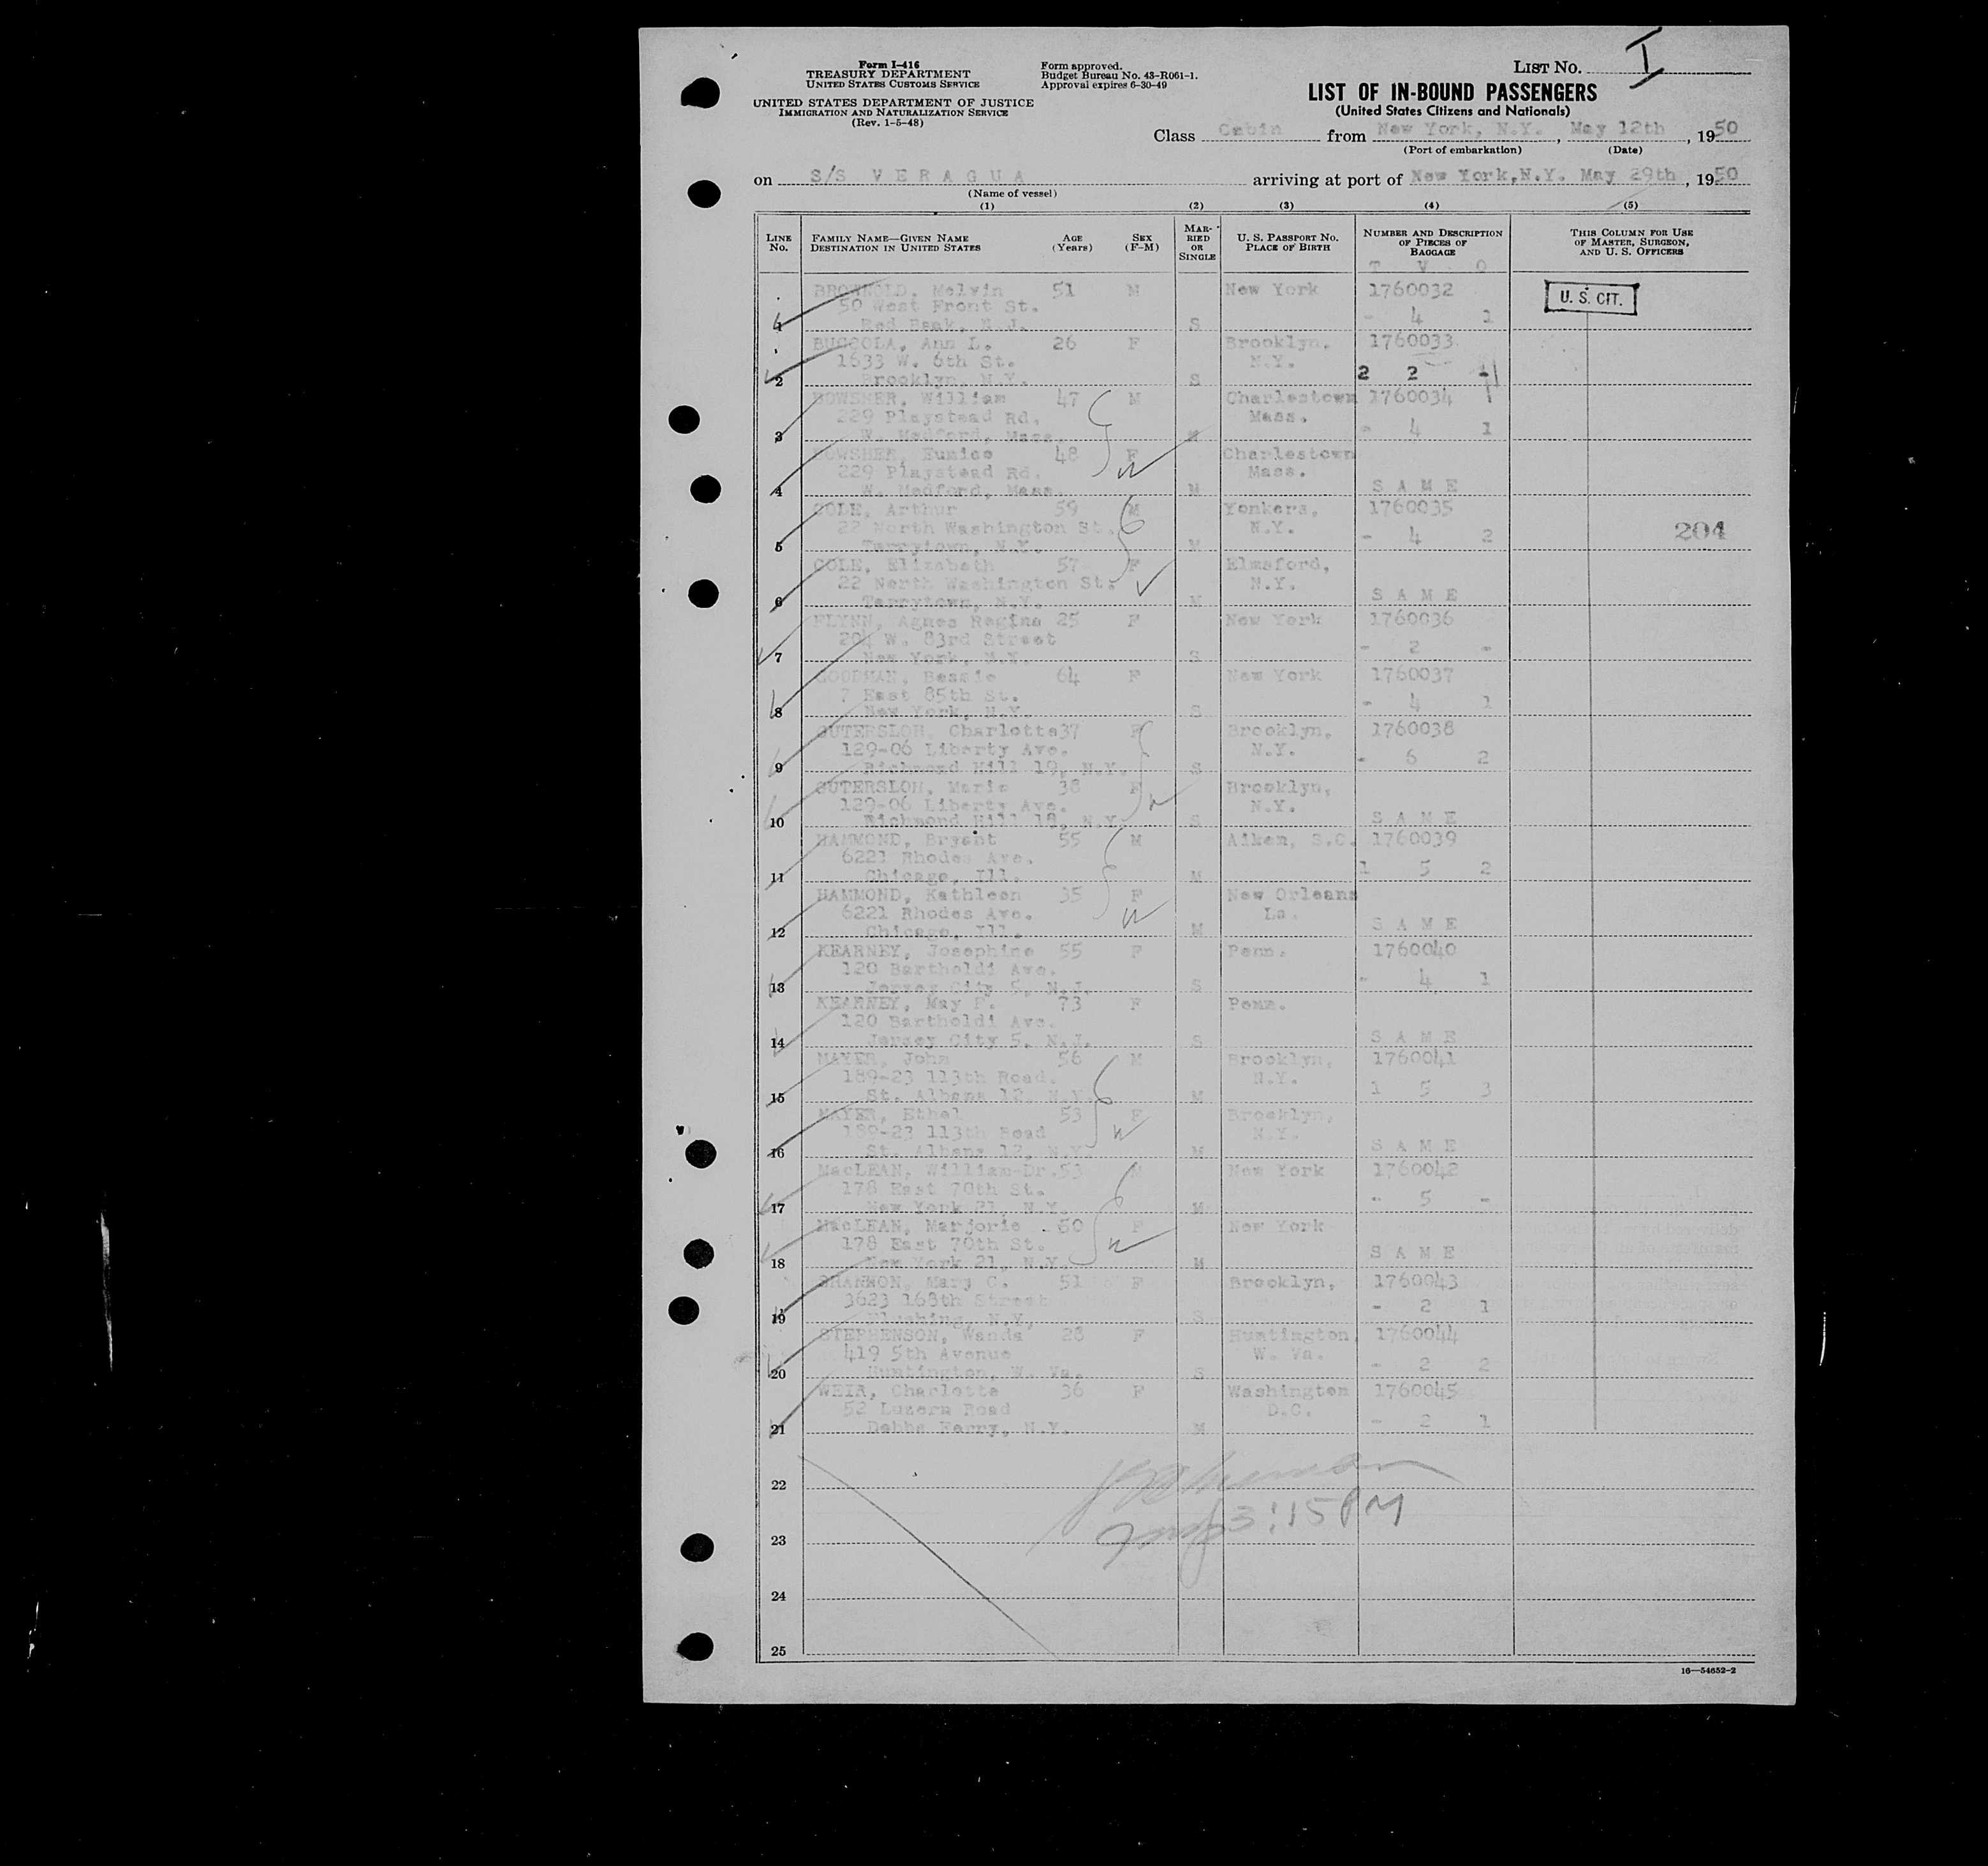 Form I-416
TREASURY DEPARTMENT
UNITED STATES CUSTOMS SERVICE
UNITED STATES DEPARTMENT OF JUSTICE
IMMIGRATION AND NATURALIZATION SERVICE
(Rev. 1-5-48)
Form approved.
Budget Bureau No. 43-R061-1.
Approval expires 6-30-49
LIST NO. I
LIST OF IN-BOUND PASSENGERS
(United States Citizens and Nationals)
Class Cabin from New York, N.Y., May 12th, 1950
(Port of embarkation) (Date)
on S/S VERAGUA arriving at port of New York, N.Y. May 29th, 1950
(Name of vessel)
(1) (2) (3) (4) (5)
LINE NO. FAMILY NAME—GIVEN NAME DESTINATION IN UNITED STATES AGE (Years) SEX (F-M) MARRIED OR SINGLE U. S. PASSPORT NO. PLACE OF BIRTH NUMBER AND DESCRIPTION OF PIECES OF BAGGAGE THIS COLUMN FOR USE OF MASTER, SURGEON, AND U. S. OFFICERS
T V O
Melvin 51 M New York 1760032 U. S. CIT.
50 West Front St.
1 Red Bank, N.J. S - 4 1
BUCCOLA, Ann L. 26 F Brooklyn, 1760033
1633 W. 6th St. N.Y.
2 Brooklyn, N.Y. S 2 2 -
BOWSHER, William 47 M Charlestown 1760034
229 Playstead Rd. Mass.
3 W. Medford, Mass. M - 4 1
BOWSHER, Eunice 48 F Charlestown
229 Playstead Rd. Mass.
4 W. Medford, Mass. M SAME
COLE, Arthur 59 M Yonkers, 1760035
22 North Washington St. N.Y. 204
5 Tarrytown, N.Y. M - 4 2
COLE, Elizabeth 57 F Elmsford,
22 North Washington St. N.Y.
6 Tarrytown, N.Y. M SAME
FLYNN, Agnes Regina 25 F New York 1760036
204 W. 83rd Street
7 New York, N.Y. S - 2 -
GOODMAN, Bessie 64 F New York 1760037
7 East 85th St.
8 New York, N.Y. S - 4 1
GUTERSLOH, Charlotte 37 F Brooklyn, 1760038
129-06 Liberty Ave. N.Y.
9 Richmond Hill 19, N.Y. S - 6 2
GUTERSLOH, Marie 38 F Brooklyn,
129-06 Liberty Ave. N.Y.
10 Richmond Hill 19, N.Y. S SAME
HAMMOND, Bryant 55 M Aiken, S.C. 1760039
6221 Rhodes Ave.
11 Chicago, Ill. M 1 5 2
HAMMOND, Kathleen 35 F New Orleans
6221 Rhodes Ave. La.
12 Chicago, Ill. M SAME
KEARNEY, Josephine 55 F Penn. 1760040
120 Bartholdi Ave.
13 Jersey City 5, N.J. S - 4 1
KEARNEY, May F. 73 F Penn.
120 Bartholdi Ave.
14 Jersey City 5, N.J. S SAME
MAYER, John 56 M Brooklyn, 1760041
189-23 113th Road. N.Y.
15 St. Albans 12, N.Y. M 1 5 3
MAYER, Ethel 53 F Brooklyn,
189-23 113th Road N.Y.
16 St. Albans 12, N.Y. M SAME
MacLEAN, William-Dr. 53 M New York 1760042
178 East 70th St.
17 New York 21, N.Y. M - 5 -
MacLEAN, Marjorie 50 F New York
178 East 70th St.
18 New York 21, N.Y. M SAME
SHANNON, Mary C. 51 F Brooklyn, 1760043
3623 168th Street
19 Flushing, N.Y. S - 2 1
STEPHENSON, Wanda 28 F Huntington, 1760044
419 5th Avenue W. Va.
20 Huntington, W. Va. S - 2 2
WEIR, Charlotte 36 F Washington 1760045
52 Luzern Road D.C.
21 Dobbs Ferry, N.Y. M - 2 1
22
3:15 PM
23
24
25
16—54652-2